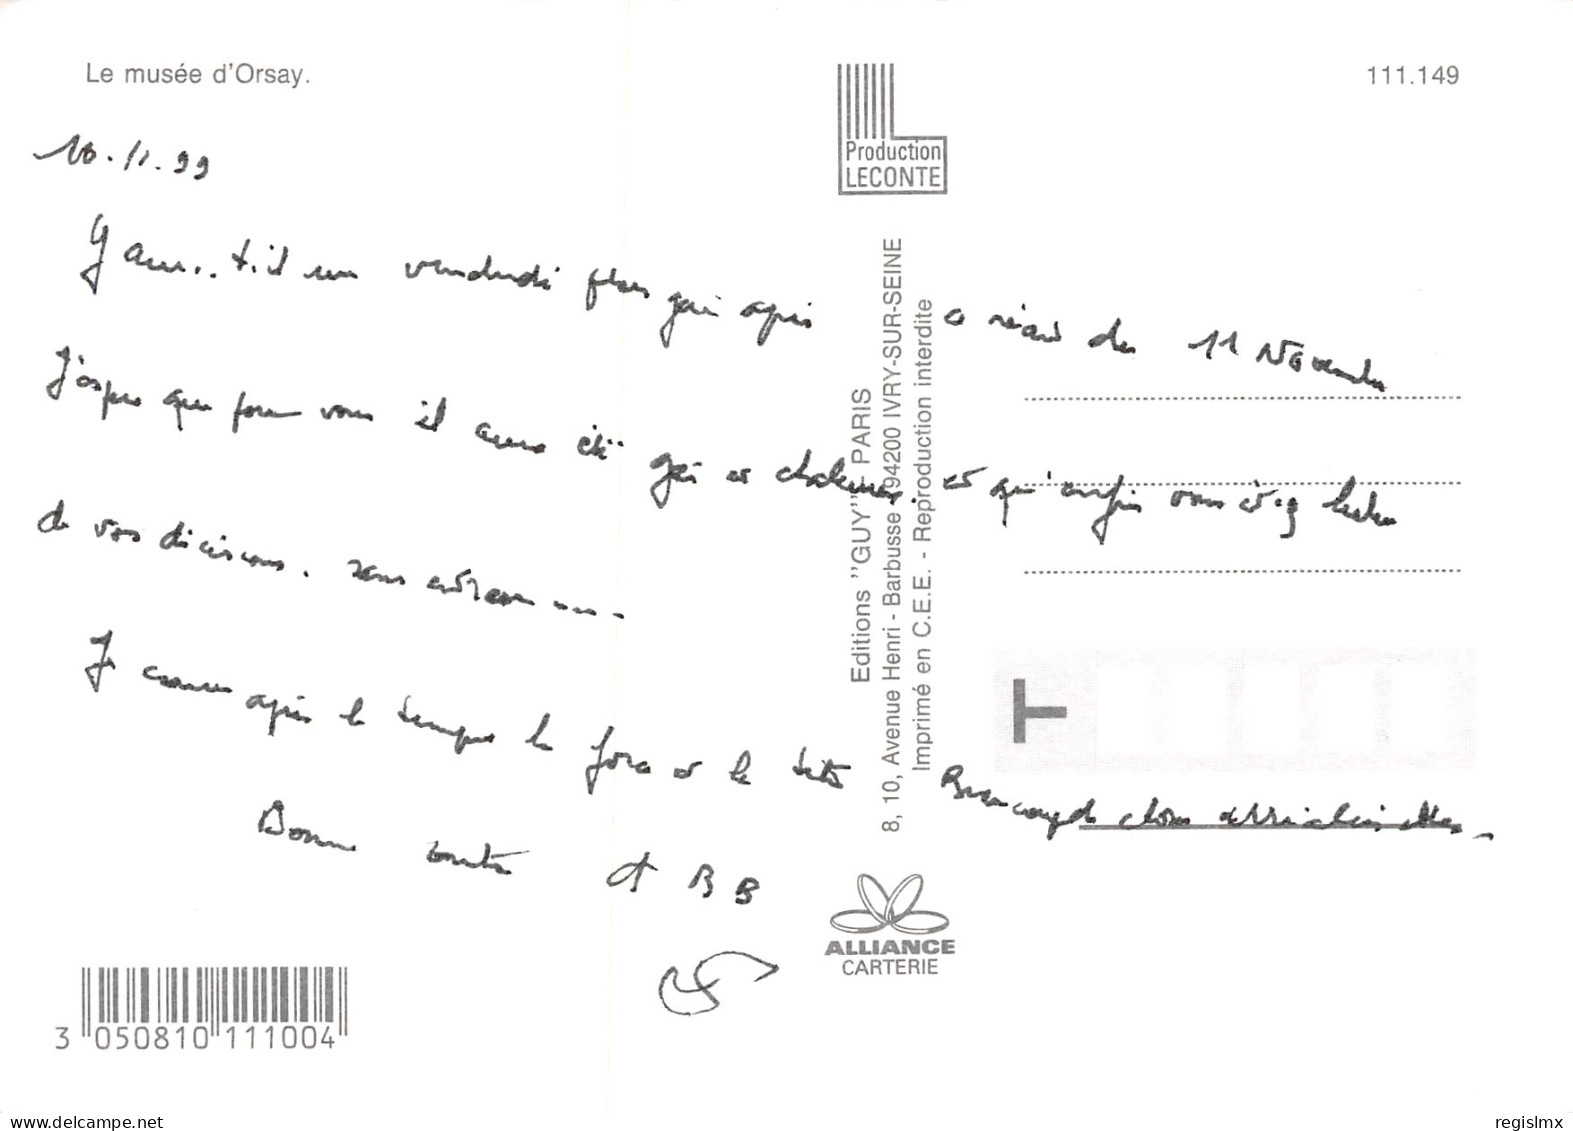 Le musée d'Orsay.
111.149
Production
LECONTE
10.11.99
Y aura..t.il un vendredi plus gai après ce réveil du 11 Novembre
J'espère que pour vous il aura été gai et chaleureux. et qu'enfin vous
de vos décisions. sans
Je cours après le temps la force et la tête Beaucoup de choses
Bonne route et BB
Editions "GUY" PARIS
8, 10, Avenue Henri - Barbusse 94200 IVRY-SUR-SEINE
Imprimé en C.E.E. - Reproduction interdite
ALLIANCE
CARTERIE
3 050810 111004
regislmx
delcampe.net